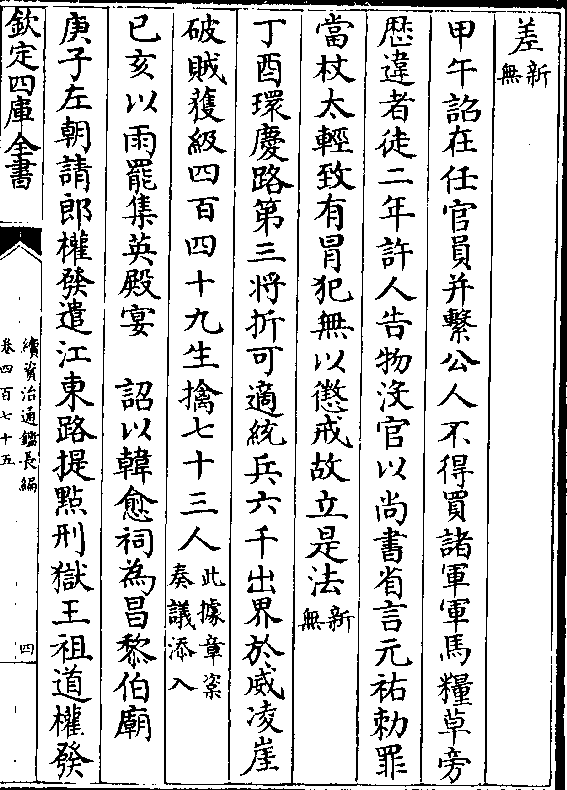 差新無
甲午詔在任官員并繫公人不得買諸軍軍馬糧草旁
歴違者徒二年許人告物沒官以尚書省言元祐勅罪
當杖太輕致有冒犯無以懲戒故立是法新無
丁酉環慶路第三将折可適統兵六千出界於威凌崖
破賊獲級四百四十九生擒七十三人此據章楶奏議添入
已亥以雨罷集英殿宴 詔以韓愈祠為昌黎伯廟
庚子左朝請郎權發遣江東路提點刑獄王祖道權發
欽定四庫全書
續資治通鑑長編
卷四百七十五
四